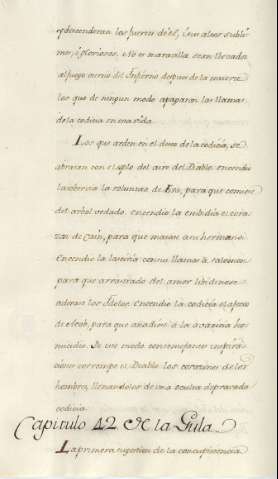 y descenderan los fuertes de él, y sus altos subli-
mes, y gloriosos. No es maravilla sean llevados
al fuego eterno del Infierno despues de la muerte
los que de ningun modo apagaron las llamas
de la codicia en esta vida.
Los que arden en el deseo de la codicia, se
abrasan con el soplo del aire del Diablo: encendio
la sobervia la voluntad de Eva, para que comiese
del arbol vedado. encendio la embidia el cora-
zon de Cain, para que matase a su hermano.
Encendio la luxuria con su llama a Salomon
para que arrastrado del amor libidinoso
adorase los Idolos. Encendio la codicia el afecto
de Acab, para que añadiese a la avaricia ho-
micidio. De este modo con
corrompe el Diablo los corazones de los
hombres, llenandolos de una oculta depravada
codicia.
Capitulo 42 de la Gula
La primera sugestion de la concupiscencia